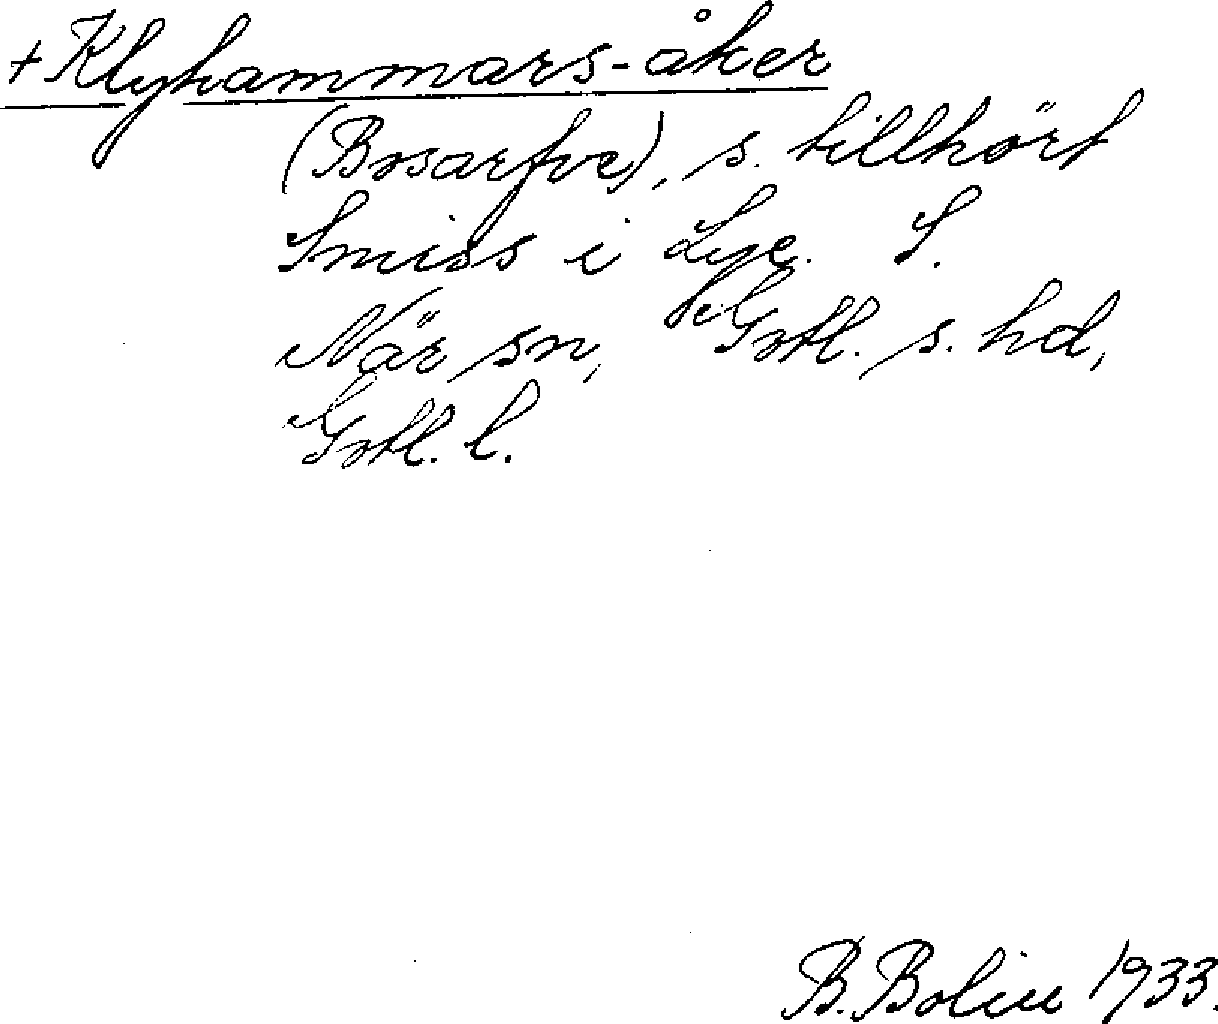 + Klyhammars-åker
(Bosarfve), s. tillhört
Smiss i Lye. S.
När sn, Gotl. s. hd,
Gotl. l.
B. Bolin 1933.